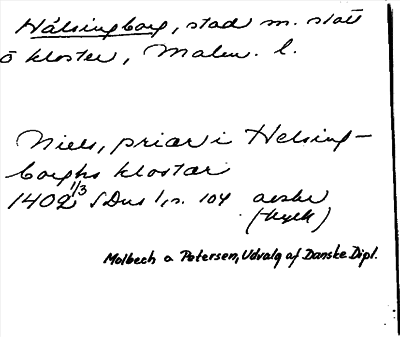 Hälsingborg, stad m. slott
o kloster, Malm. l.
Niels, priar i Helsing-
borghs klostar
1402 1/3 SDns 1, s. 104
(tryck)
Molbech o Petersen, Udvalg af Danske Dipl.